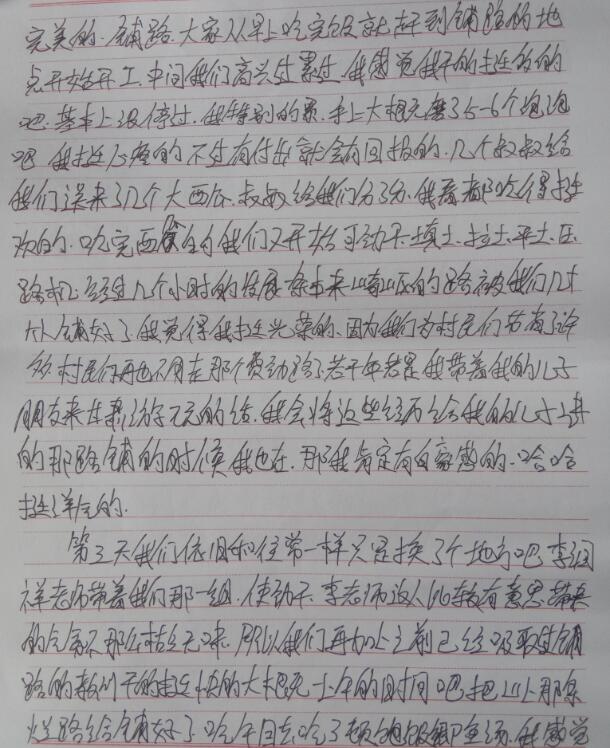 完美的.铺路.大家从早上吃完饭就赶到铺路的地
点开始开工.中间我们高兴过累过.我感觉我干的挺多的
吧.基本上没停过.我特别的累.手上大概充磨了5-6个泡泡
吧 我挺心疼的不过有付出就会有回报的.几个叔叔给
我们送来了几个大西瓜.叔叔给我们分了分.我看都吃得挺
欢的.吃完西瓜的我们又开始可劲干.填土.拉土.平土.压
路机.经过几个小时的发展 原本来山的路被我们几十
个人铺好了.我觉得我挺光荣的.因为我们为村民们节省了许
多.村民们再也不用走那个费劲路了.若干年若是我带着我的儿子
朋友来这游玩的话.我会将这些经历给我的儿子讲
的那路铺的时候我也在.那我肯定有自豪感的.哈哈
挺洋气的.
第三天我们依旧和往常一样只是换了个地方吧 李润
祥老师带着我们那一组.使劲干.李老师这人比较有意思.带来
的气氛不那么枯乏无味.所以我们再加上之前已经吸取过铺
路的教训干的挺快的大概一上午的时间吧把山上那条
烂路给铺好了.吃午回去吃了顿饭.我感觉